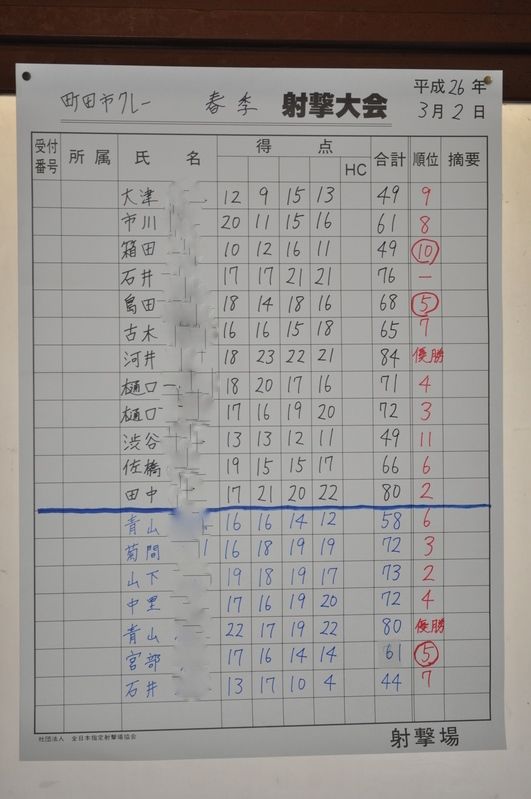 町田市クレー 春季 射撃大会 平成26年
3月2日
受付番号 所属 氏名 得点 HC 合計 順位 摘要
大津 12 9 15 13 49 9
市川 20 11 15 16 61 8
箱田 10 12 16 11 49 10
石井 17 17 21 21 76 一
島田 18 14 18 16 68 5
古木 16 16 15 18 65 7
河井 18 23 22 21 84 優勝
樋口 18 20 17 16 71 4
樋口 17 16 19 20 72 3
渋谷 13 13 12 11 49 11
佐橋 19 15 15 17 66 6
田中 17 21 20 22 80 2
青山 16 16 14 12 58 6
菊間 16 18 19 19 72 3
山下 19 18 19 17 73 2
中里 17 16 19 20 72 4
青山 22 17 19 22 80 優勝
宮部 17 16 14 14 61 5
石井 13 17 10 4 44 7
社団法人 全日本指定射撃場協会 射撃場